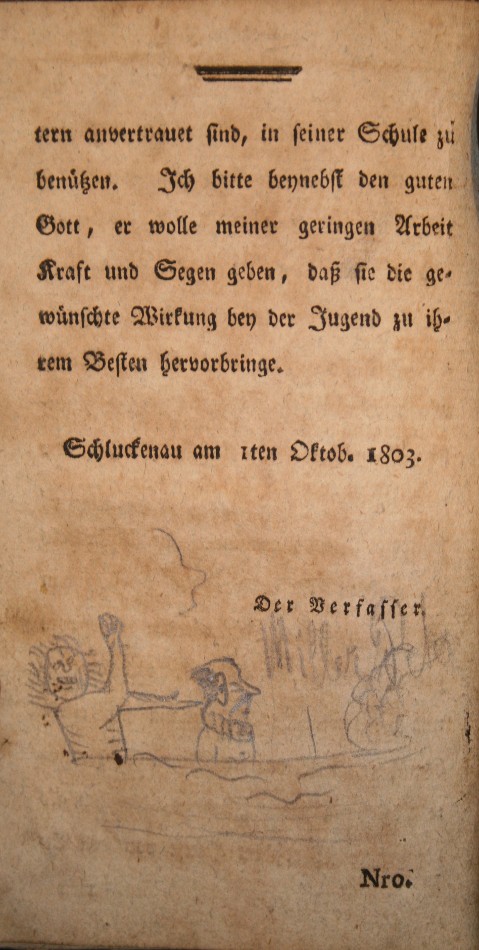 tern anvertrauet sind, in seiner Schule zu
benützen. Ich bitte beynebst den guten
Gott, er wolle meiner geringen Arbeit
Kraft und Segen geben, daß sie die ge-
wünschte Wirkung bey der Jugend zu ih-
rem Besten hervorbringe.
Schluckenau am 1ten Oktob. 1803.
Der Verfasser.
Nro.